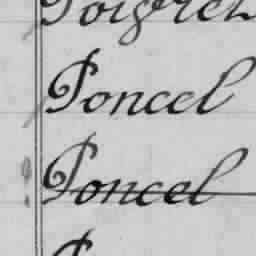 Poncel
Poncel